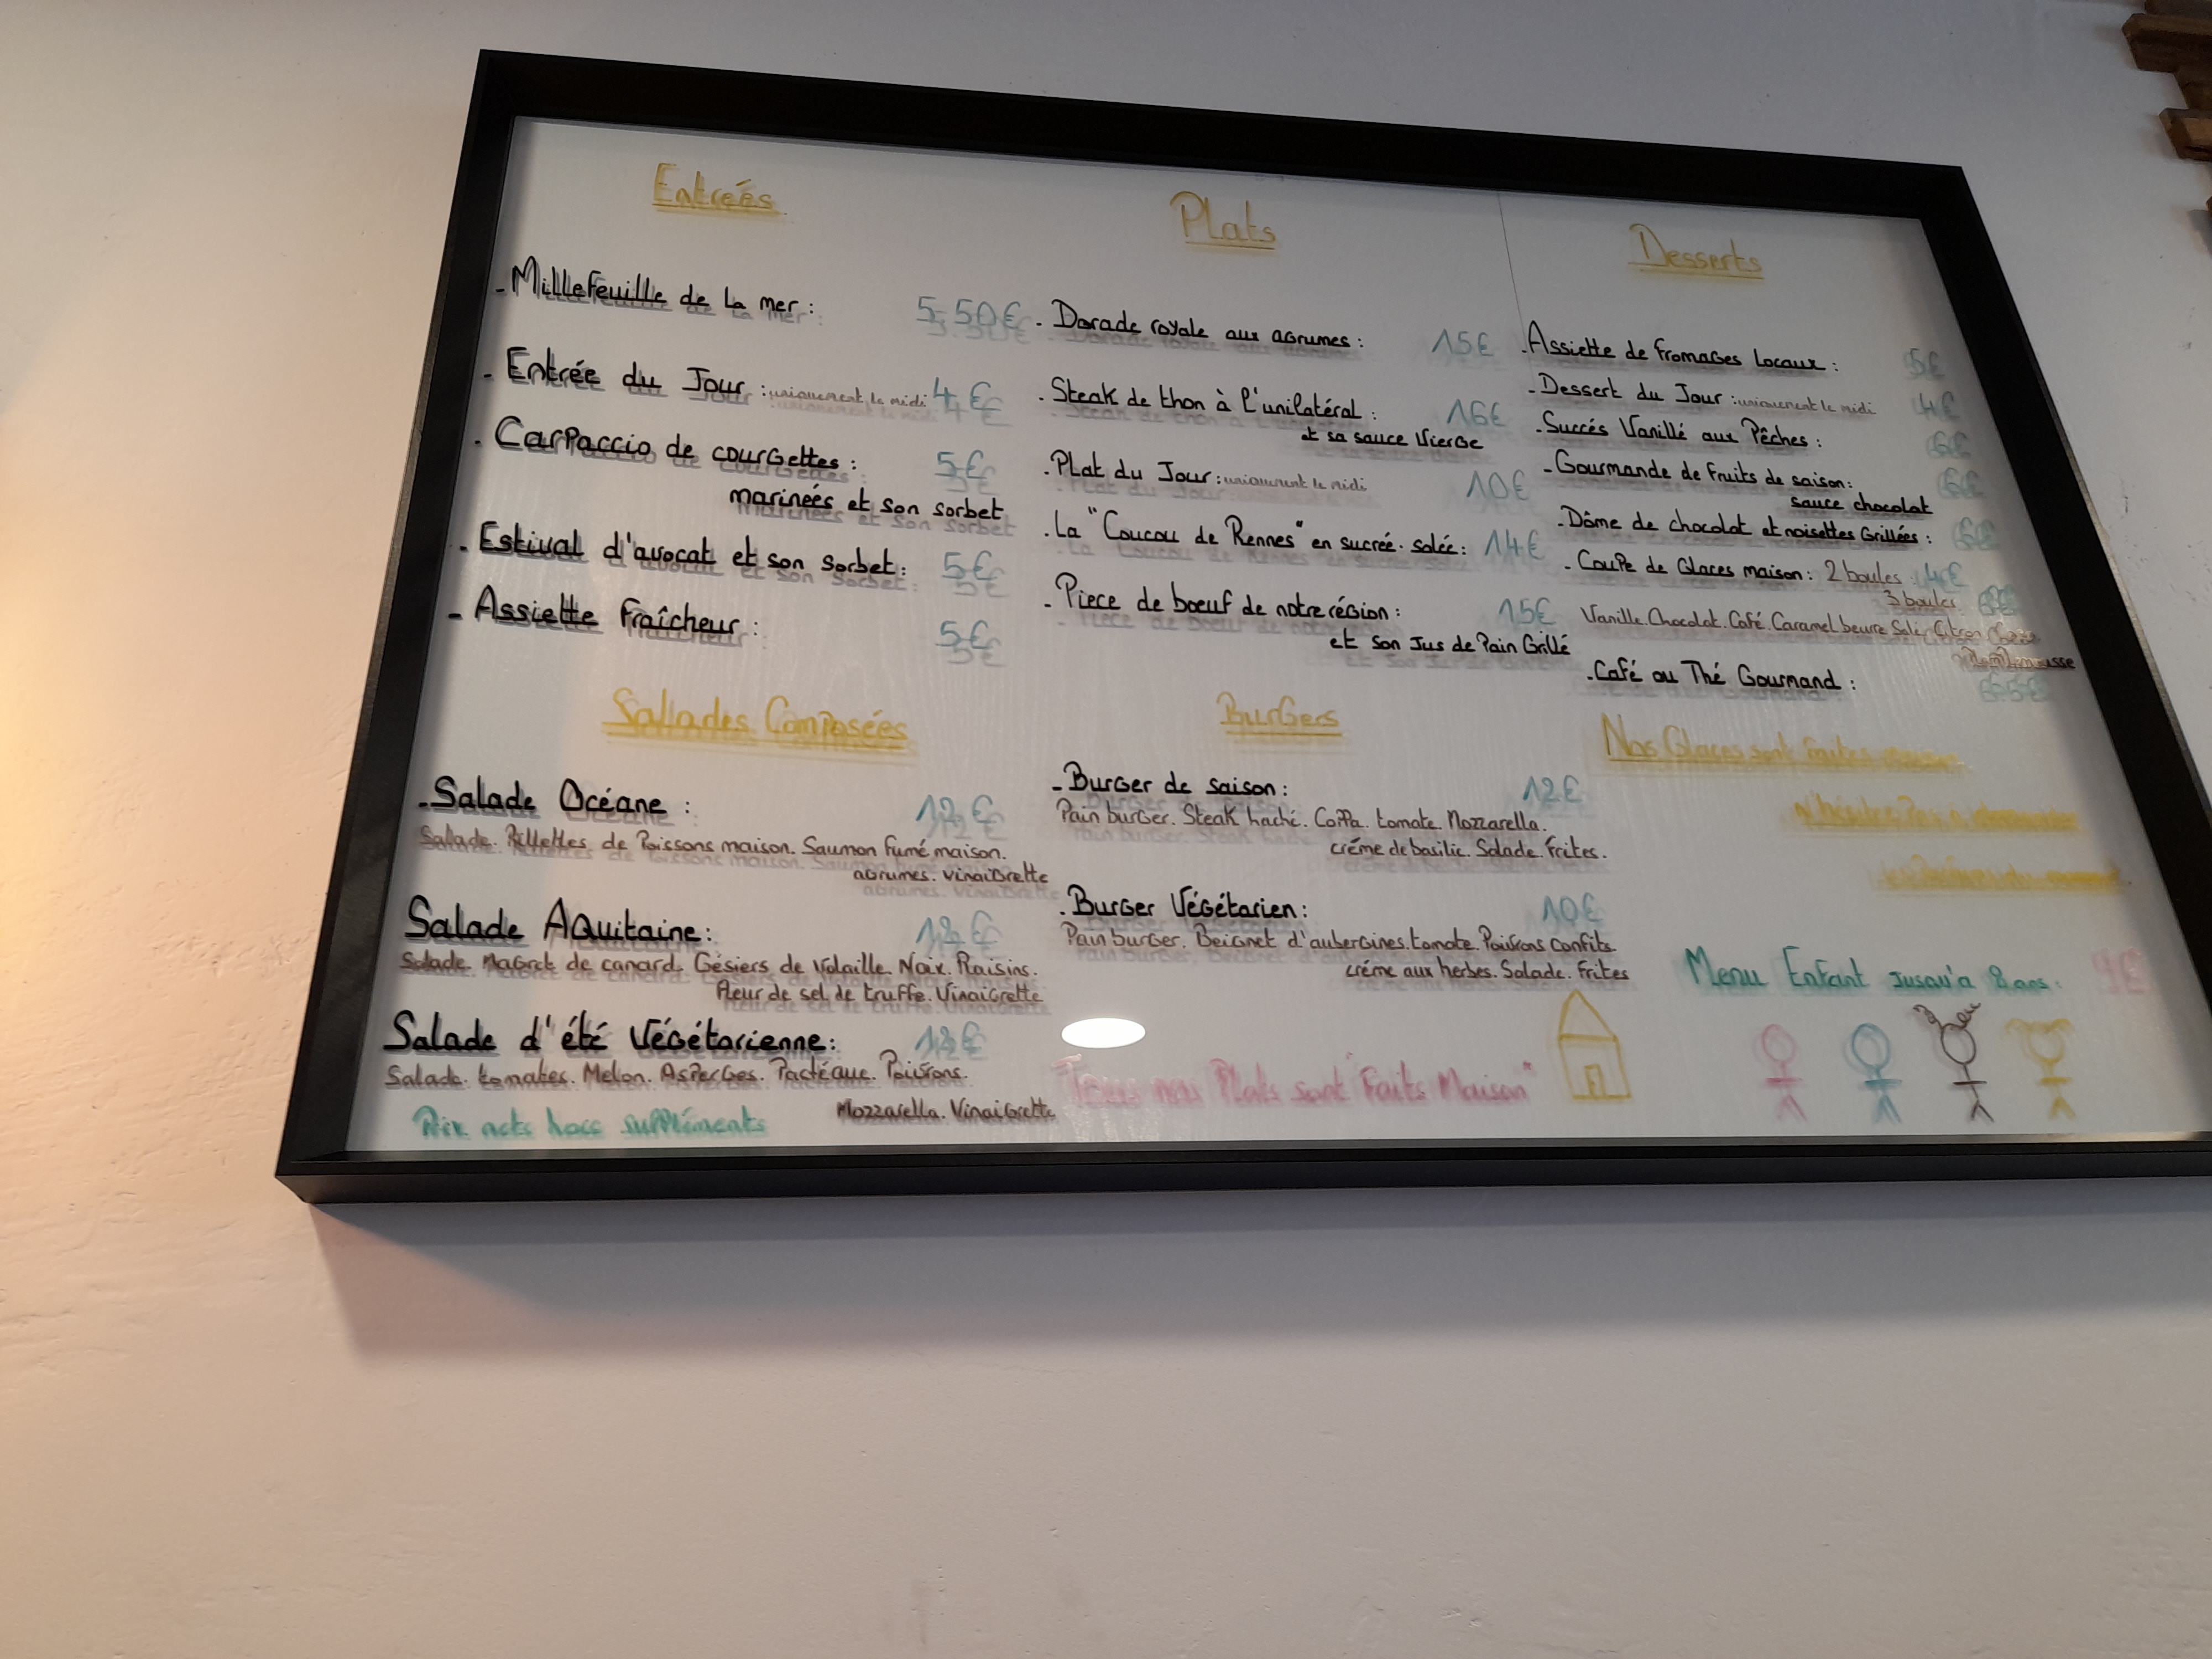 Entrées
- Millefeuille de la mer : 5.50€
- Entrée du Jour : uniquement le midi 4€
- Carpaccio de courgettes : 5€
marineés et son sorbet
- Estival d'avocat et son sorbet : 5€
- Assiette Fraîcheur : 5€
Sallades Composées
- Salade Océane : 12€
Salade. Rillettes de Poissons maison. Saumon fumé maison.
agrumes. vinaigrette
Salade Aquitaine : 12€
Salade. Magret de canard. Gésiers de Volaille. Noix. Raisins.
fleur de sel de truffe. Vinaigrette
Salade d'été Végétarienne : 12€
Salade. tomates. Melon. Asperges. Pastéque. Poivrons.
Mozzarella. Vinaigrette
Prix nets hors suppléments
Plats
- Dorade royale aux agrumes : 15€
- Steak de thon à l'unilatéral : 16€
et sa sauce Vierge
- Plat du Jour : uniquement le midi 10€
- La "Coucou de Rennes" en sucrée. salée : 14€
- Piece de boeuf de notre région : 15€
et son Jus de Pain Grillé
Burgers
- Burger de saison : 12€
Pain burger. Steak haché. Coppa. tomate. Mozzarella.
créme de basilic. Salade. Frites.
- Burger Végétarien : 10€
Pain burger. Beignet d'aubergines. tomate. Poivrons Confits
créme aux herbes. Salade. Frites
"Tous nos Plats sont "Faits Maison"
Desserts
- Assiette de fromages Locaux : 5€
- Dessert du Jour : uniquement le midi 4€
- Succés Vanillé aux Pêches : 6€
- Gourmande de fruits de saison : 6€
sauce chocolat
- Dôme de chocolat et noisettes Grillées : 6€
- Coupe de Glaces maison : 2 boules : 4€
3 boules 6€
Vanille. Chocolat. Café. Caramel beurre Salé. Citron
- Café ou Thé Gourmand :
Nos Glaces sont faites maison
Menu Enfant Jusqu'a 8 ans : 9€